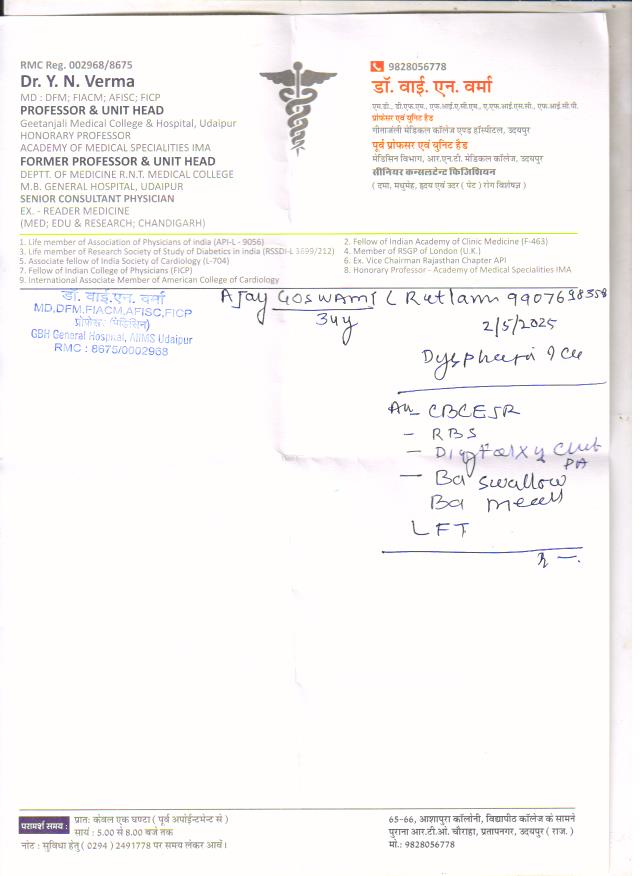 RMC Reg. 002968/8675
Dr. Y. N. Verma
MD : DFM; FIACM; AFISC; FICP
PROFESSOR & UNIT HEAD
Geetanjali Medical College & Hospital, Udaipur
HONORARY PROFESSOR
ACADEMY OF MEDICAL SPECIALITIES IMA
FORMER PROFESSOR & UNIT HEAD
DEPTT. OF MEDICINE R.N.T. MEDICAL COLLEGE
M.B. GENERAL HOSPITAL, UDAIPUR
SENIOR CONSULTANT PHYSICIAN
EX. - READER MEDICINE
(MED; EDU & RESEARCH; CHANDIGARH)
9828056778
डॉ. वाई. एन. वर्मा
एम.डी., डी.एफ.एम., एफ.आई.ए.सी.एम., ए.एफ.आई.एस.सी., एफ.आई.सी.पी.
प्रोफेसर एवं यूनिट हैड
गीतांजली मेडिकल कॉलेज एण्ड हॉस्पीटल, उदयपुर
पूर्व प्रोफसर एवं यूनिट हैड
मेडिसिन विभाग, आर.एन.टी. मेडिकल कॉलेज, उदयपुर
सीनियर कन्सलटेन्ट फिजिशियन
( दमा, मधुमेह, हृदय एवं उदर ( पेट ) रोग विशेषज्ञ )
1. Life member of Association of Physicians of india (API-L - 9056)
3. Life member of Research Society of Study of Diabetics in india (RSSDI-L 3699/212)
5. Associate fellow of India Society of Cardiology (L-704)
7. Fellow of Indian College of Physicians (FICP)
9. International Associate Member of American College of Cardiology
2. Fellow of Indian Academy of Clinic Medicine (F-463)
4. Member of RSGP of London (U.K.)
6. Ex. Vice Chairman Rajasthan Chapter API
8. Honorary Professor - Academy of Medical Specialities IMA
डॉ. वाई.एन. वर्मा
MD,DFM,FIACM,AFISC,FICP
प्रोफेसर (मेडिसिन)
GBH General Hospital, AIIMS Udaipur
RMC : 8675/0002968
Ajay Goswami ( Rutlam 9907698358
34y
2/5/2025
Dysphagia
CBC ESR
- RBS
- Digital Xy Chest
PA
- Ba swallow
Ba meal
LFT
परामर्श समय :
प्रातः केवल एक घण्टा ( पूर्व अपॉईन्टमेन्ट से )
सायं : 5.00 से 8.00 बजे तक
नोट : सुविधा हेतु ( 0294 ) 2491778 पर समय लेकर आवें।
65-66, आशापुरा कॉलोनी, विद्यापीठ कॉलेज के सामने
पुराना आर.टी.ओ. चौराहा, प्रतापनगर, उदयपुर ( राज. )
मो.: 9828056778